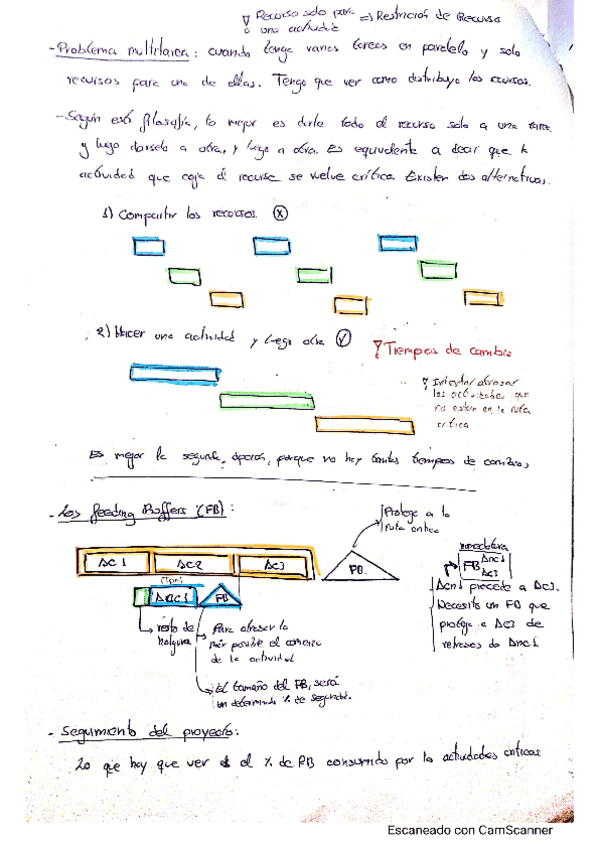 Recurso solo para => Restricción de Recurso
una actividad
- Problema multitarea: cuando tengo varias tareas en paralelo y solo
recursos para una de ellas. Tengo que ver como distribuyo los recursos.
- Según esta filosofía, lo mejor es darle todo el recurso solo a una tarea
y luego dárselo a otra, y luego a otra. Es equivalente a decir que la
actividad que coja el recurso se vuelve crítica. Existen dos alternativas.
1) Compartir los recursos. X
2) Hacer una actividad y luego otra
Tiempos de cambio
Intentar atrasar
las actividades que
no esten en la ruta
crítica
Es mejor la segunda, opción, porque no hay tantos tiempos de cambios
- Los Feeding Buffers (FB):
Protege a la
ruta crítica
Ac1 Ac2 Ac3 PB
nomenclatura
FB Anc1
Ac3
Anc1 FB
Anc1 precede a Ac3.
Necesito un FB que
proteja a Ac3 de
retrasos de Anc1
resto de
holgura
Para atrasar lo
más posible el comienzo
de la actividad
El tamaño del FB, será
un determinado % de seguridad.
- Seguimiento del proyecto:
Lo que hay que ver es el % de PB consumido por las actividades críticas
Escaneado con CamScanner